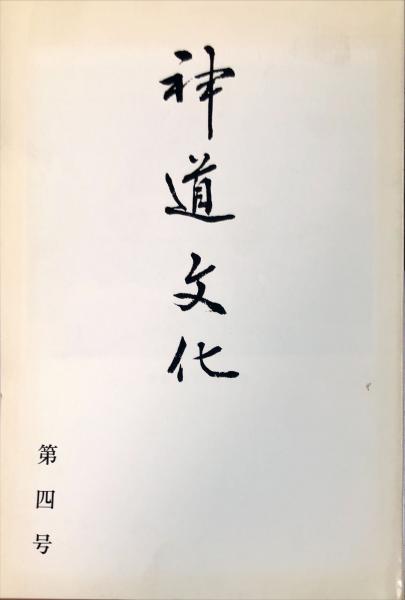 神道文化
第四号